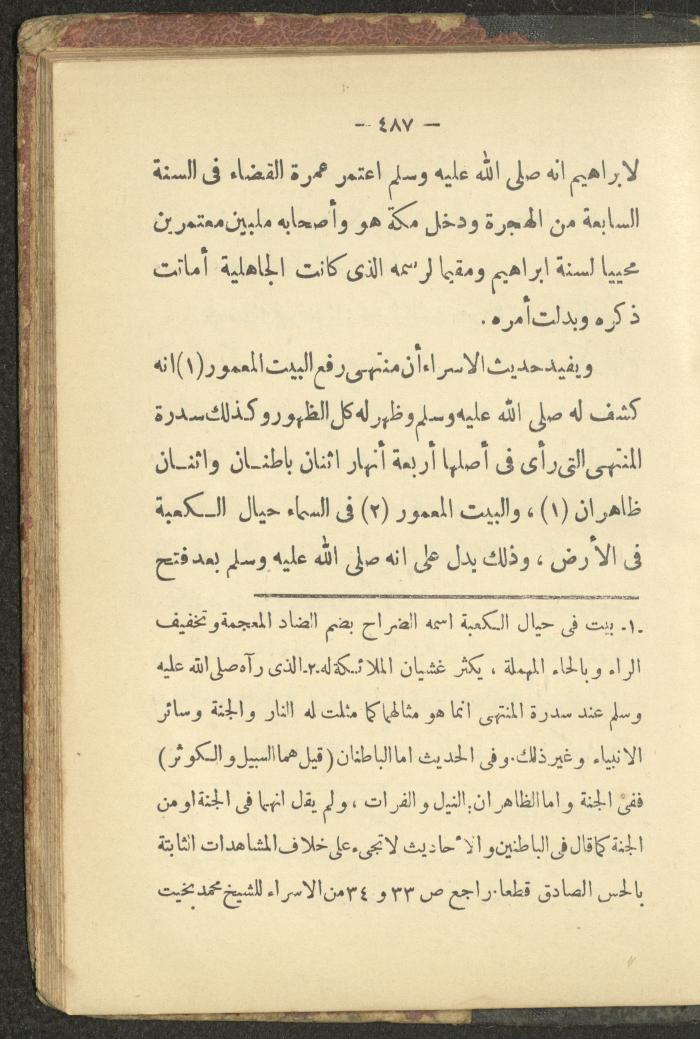 — ٤٨٧ —
لابراهيم انه صلى الله عليه وسلم اعتمر عمرة القضاء فى السنة
السابعة من الهجرة ودخل مكة هو وأصحابه ملبين معتمرين
محييا لسنة ابراهيم ومقيما لرسمه الذى كانت الجاهلية أماتت
ذكره وبدلت أمره .
ويفيد حديث الاسراء أن منتهى رفع البيت المعمور (١) انه
كشف له صلى الله عليه وسلم وظهر له كل الظهور وكذلك سدرة
المنتهى التى رأى فى أصلها أربعة أنهار اثنان باطنان واثنان
ظاهران (١) ، والبيت المعمور (٢) فى السماء حيال الكعبة
فى الأرض ، وذلك يدل على انه صلى الله عليه وسلم بعد فتح
.١. بيت فى حيال الكعبة اسمه الضراح بضم الضاد المعجمة وتخفيف
الراء وبالحاء المهملة ، يكثر غشيان الملائكة له .٢. الذى رآه صلى الله عليه
وسلم عند سدرة المنتهى انما هو مثالها كما مثلت له النار والجنة وسائر
الانبياء وغير ذلك . وفى الحديث اما الباطنان (قيل هما السبيل والكوثر)
ففى الجنة واما الظاهران : النيل والفرات ، ولم يقل انهما فى الجنة او من
الجنة كما قال فى الباطنين والأحاديث لاتجىء على خلاف المشاهدات الثابتة
بالحس الصادق قطعا . راجع ص ٣٣ و ٣٤ من الاسراء للشيخ محمد بخيت